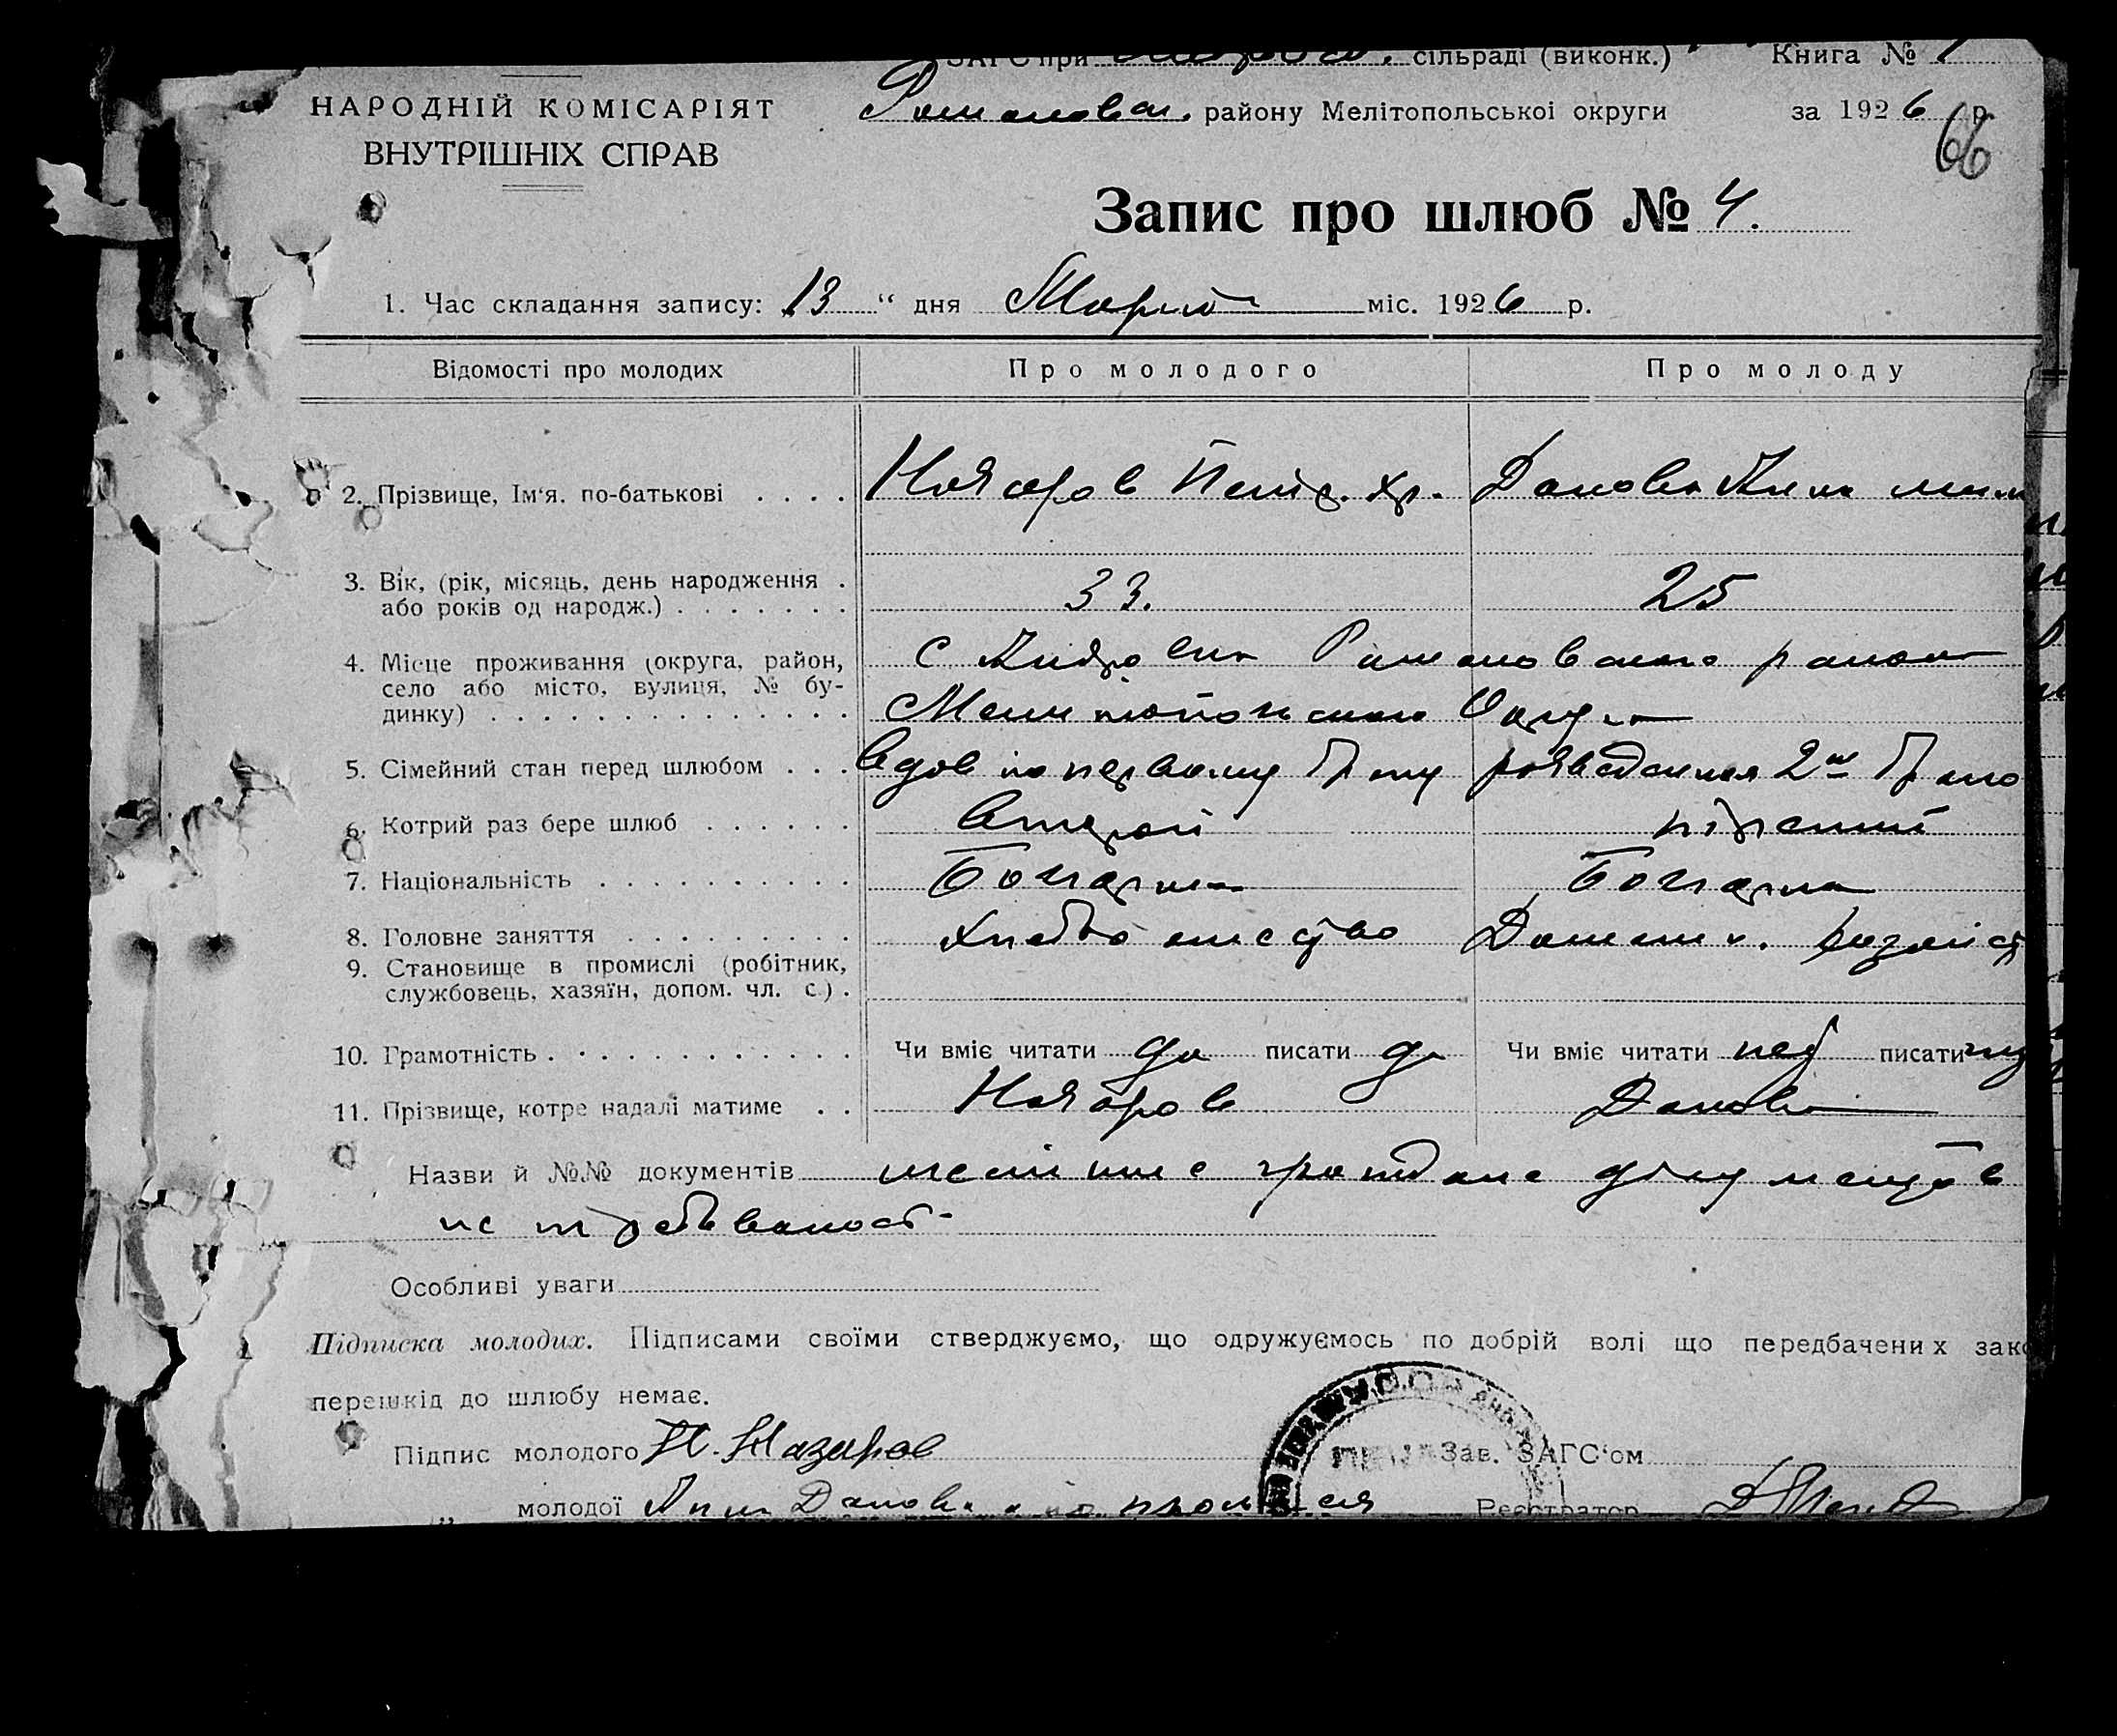 ЗАГС при сільраді (виконк.) Книга №
Романовск. району Мелітопольської округи за 1926 р.
66
НАРОДНІЙ КОМІСАРІЯТ
ВНУТРІШНІХ СПРАВ
Запис про шлюб № 4.
1. Час складання запису: 13 “ дня Марта міс. 1926 р.
Відомості про молодих Про молодого Про молоду
2. Прізвище, Ім‘я. по-батькові . . . . Назаров Хр. Данова Анна
3. Вік, (рік, місяць, день народження . 33. 25
або років од народж.) . . . . . . .
4. Місце проживання (округа, район, с Романовского района
село або місто, вулиця, № бу-
динку) . . . . . . . . . . . . . . Мелитопольского Округа
5. Сімейний стан перед шлюбом . . . вдов по первому браку разведенная 2м
6. Котрий раз бере шлюб . . . . . . второй третий
7. Національність . . . . . . . . . . Болгарин Болгарка
8. Головне заняття . . . . . . . . . Хлебопашество Домашн.
9. Становище в промислі (робітник,
службовець, хазяїн, допом. чл. с.) .
10. Грамотність . . . . . . . . . . . . Чи вміє читати да писати да Чи вміє читати нет писати
11. Прізвище, котре надалі матиме . . Назаров Данова
Назви й №№ документів местные граждане документов
не требовалось
Особливі уваги
Підписка молодих. Підписами своїми стверджуємо, що одружуємось по добрій волі що передбачених зако
перешкід до шлюбу немає.
Підпис молодого Назаров Зав. ЗАГС‘ом
„ молодої Анна Данова Реєстратор